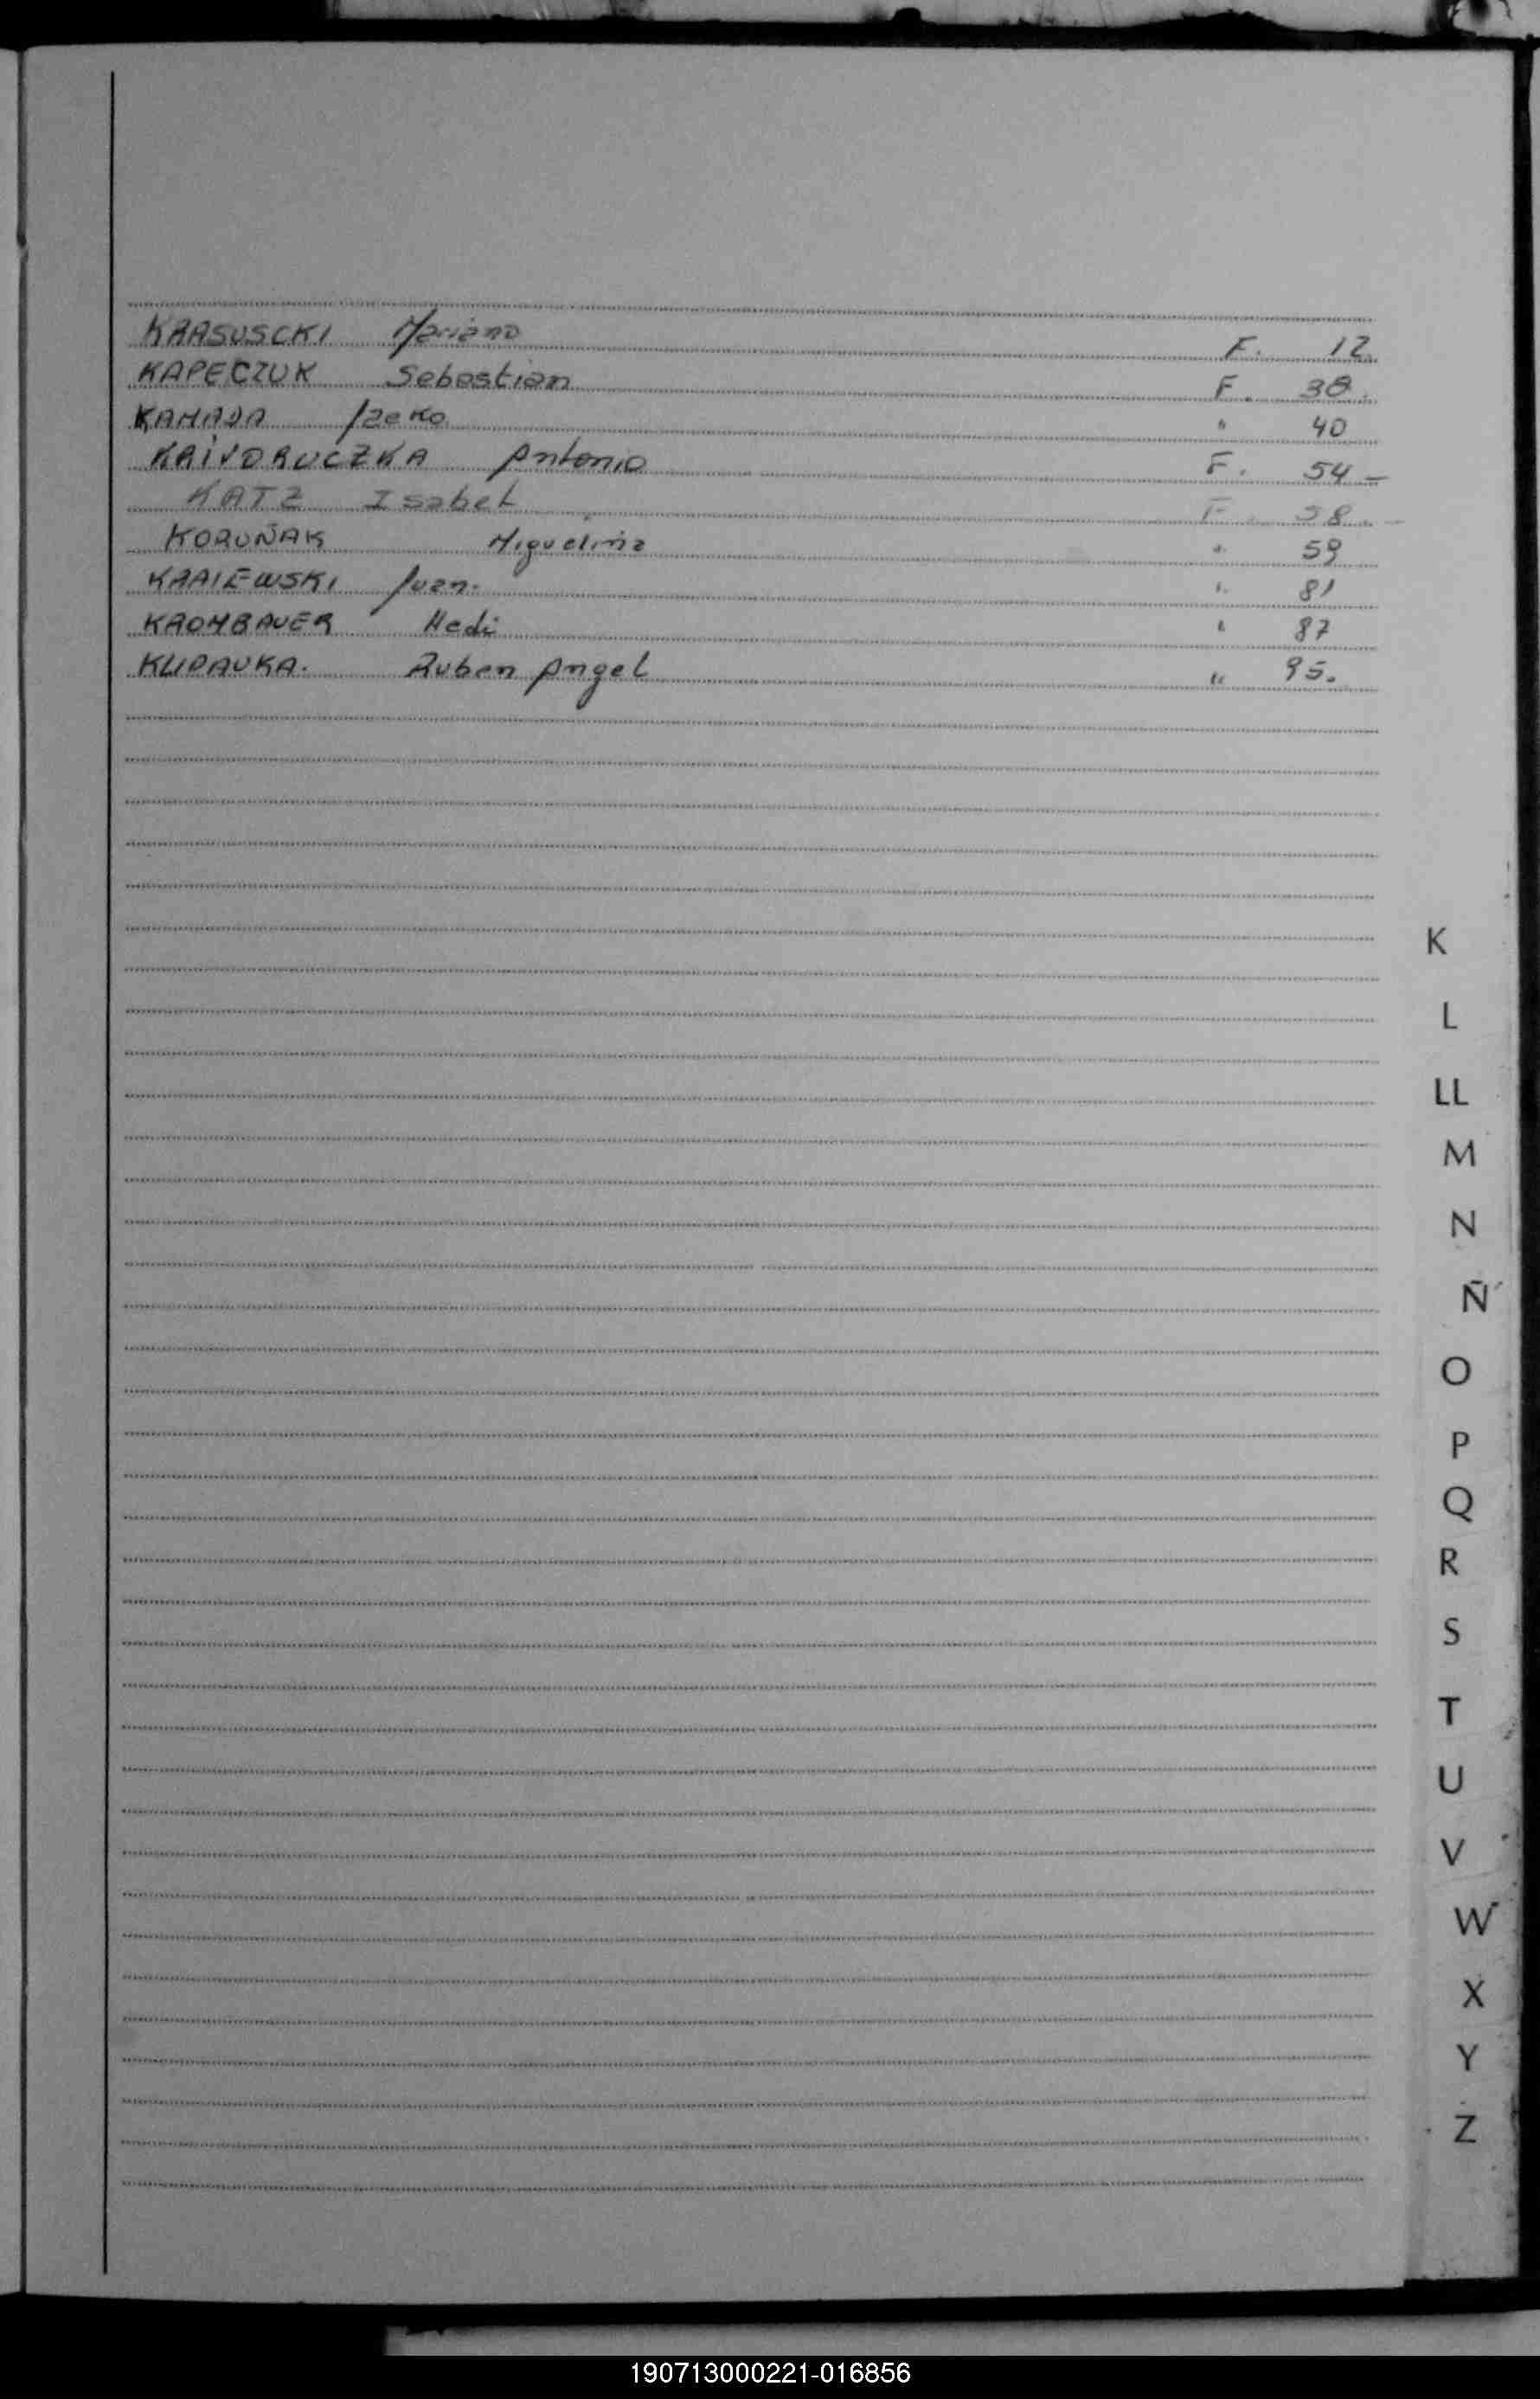 KRASUSCKI Mariano F. 12
KAPECZUK Sebastian F. 38.
KAMADA Izeko " 40
KRIVORUCZKA Antonio F. 54 -
KATZ Isabel F. 58. -
KORUÑAK Miguelina " 59
KRAIEWSKI Juan. " 81
KROMBAUER Hedi " 87
KLIPAUKA. Ruben Angel " 95.
K
L
LL
M
N
Ñ
O
P
Q
R
S
T
U
V
W
X
Y
Z
190713000221-016856